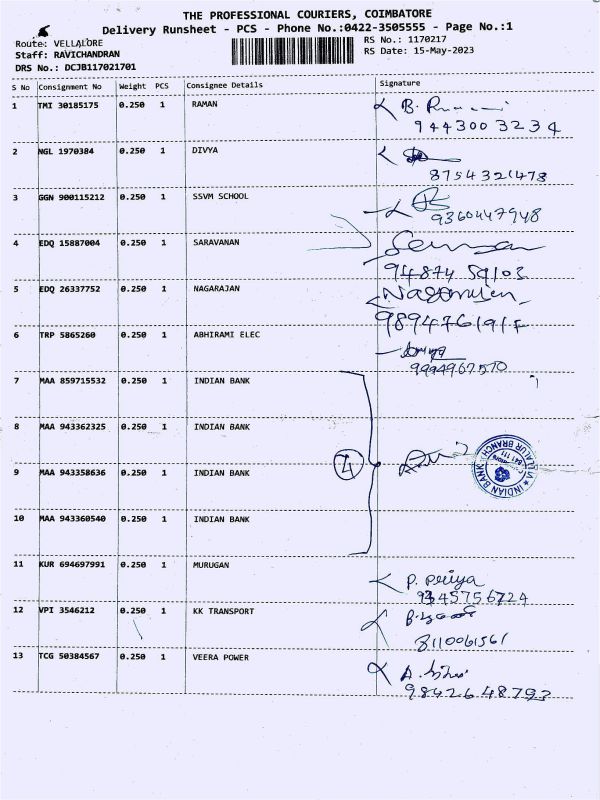 THE PROFESSIONAL COURIERS, COIMBATORE
Delivery Runsheet - PCS - Phone No.:0422-3505555 - Page No.:1
Route: VELLALORE
Staff: RAVICHANDRAN
DRS No.: DCJB117021701
RS No.: 1170217
RS Date: 15-May-2023
S No Consignment No Weight PCS Consignee Details Signature
1 TMI 30185175 0.250 1 RAMAN
9443003234
2 NGL 1970384 0.250 1 DIVYA
8754321478
3 GGN 900115212 0.250 1 SSVM SCHOOL
9360447948
4 EDQ 15887004 0.250 1 SARAVANAN
94874 59103
5 EDQ 26337752 0.250 1 NAGARAJAN
Nagarajan
6 TRP 5865260 0.250 1 ABHIRAMI ELEC
9994967570
7 MAA 859715532 0.250 1 INDIAN BANK
8 MAA 943362325 0.250 1 INDIAN BANK
9 MAA 943358636 0.250 1 INDIAN BANK
4
INDIAN BANK
10 MAA 943360540 0.250 1 INDIAN BANK
11 KUR 694697991 0.250 1 MURUGAN
P. Priya
9345756724
12 VPI 3546212 0.250 1 KK TRANSPORT
8110061561
13 TCG 50384567 0.250 1 VEERA POWER
9842648793